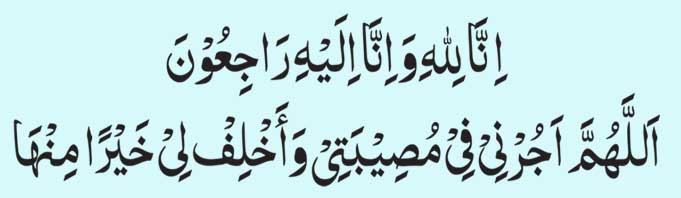 اِنَّا لِلّٰهِ وَاِنَّا اِلَيْهِ رَاجِعُوْنَ
اَللَّهُمَّ اَجُرْنِيْ فِيْ مُصِيْبَتِيْ وَأَخْلِفْ لِيْ خَيْرًا مِنْهَا